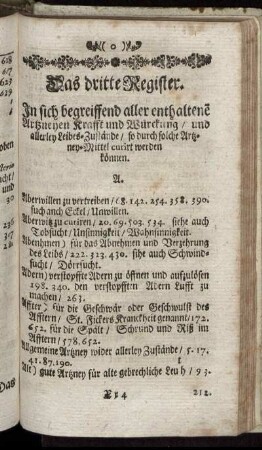 (o)
Das dritte Register.
In sich begreiffend aller enthaltenẽ
Artzneyen Krafft und Würckung / und
allerley Leibes-Zustände / so durch solche Artz-
ney-Mittel curirt werden
können.
A.
Aberwillen zu vertreiben / (8. 142. 254. 358. 390.
such auch Eckel / Unwillen.
Aberwitz zu curiren / 20. 69. 503. 534. siehe auch
Tobsucht / Unsinnigkeit / Wahnsinnigkeit.
Abnehmen) für das Abnehmen und Verzehrung
des Leibs / 222. 323. 430. sihe auch Schwind-
sucht / Dörrsucht.
Adern) verstopffte Adern zu öffnen und aufzulösen
298. 340. den verstopfften Adern Lufft zu
machen / 263.
Affter) für die Geschwär oder Geschwulst des
Afftern / St. Fickers Kranckheit genannt / 172.
652. für die Spält / Schrund und Riß im
Afftern / 578. 652.
Allgemeine Artzney wider allerley Zustände / 5. 17.
41. 87. 190.
Alt) gute Artzney für alte gebrechliche Leuth / 93.
212.